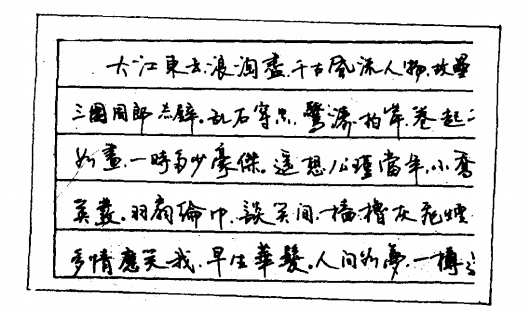 大江東去.浪淘盡.千古風流人物.故壘
三國周郎赤壁.乱石穿空.驚濤拍岸.卷起
如畫.一時多少豪傑.遥想公瑾當年.小喬
英發.羽扇綸巾.談笑间.檣櫓灰飛煙
多情應笑我.早生華髮.人间如夢.一樽